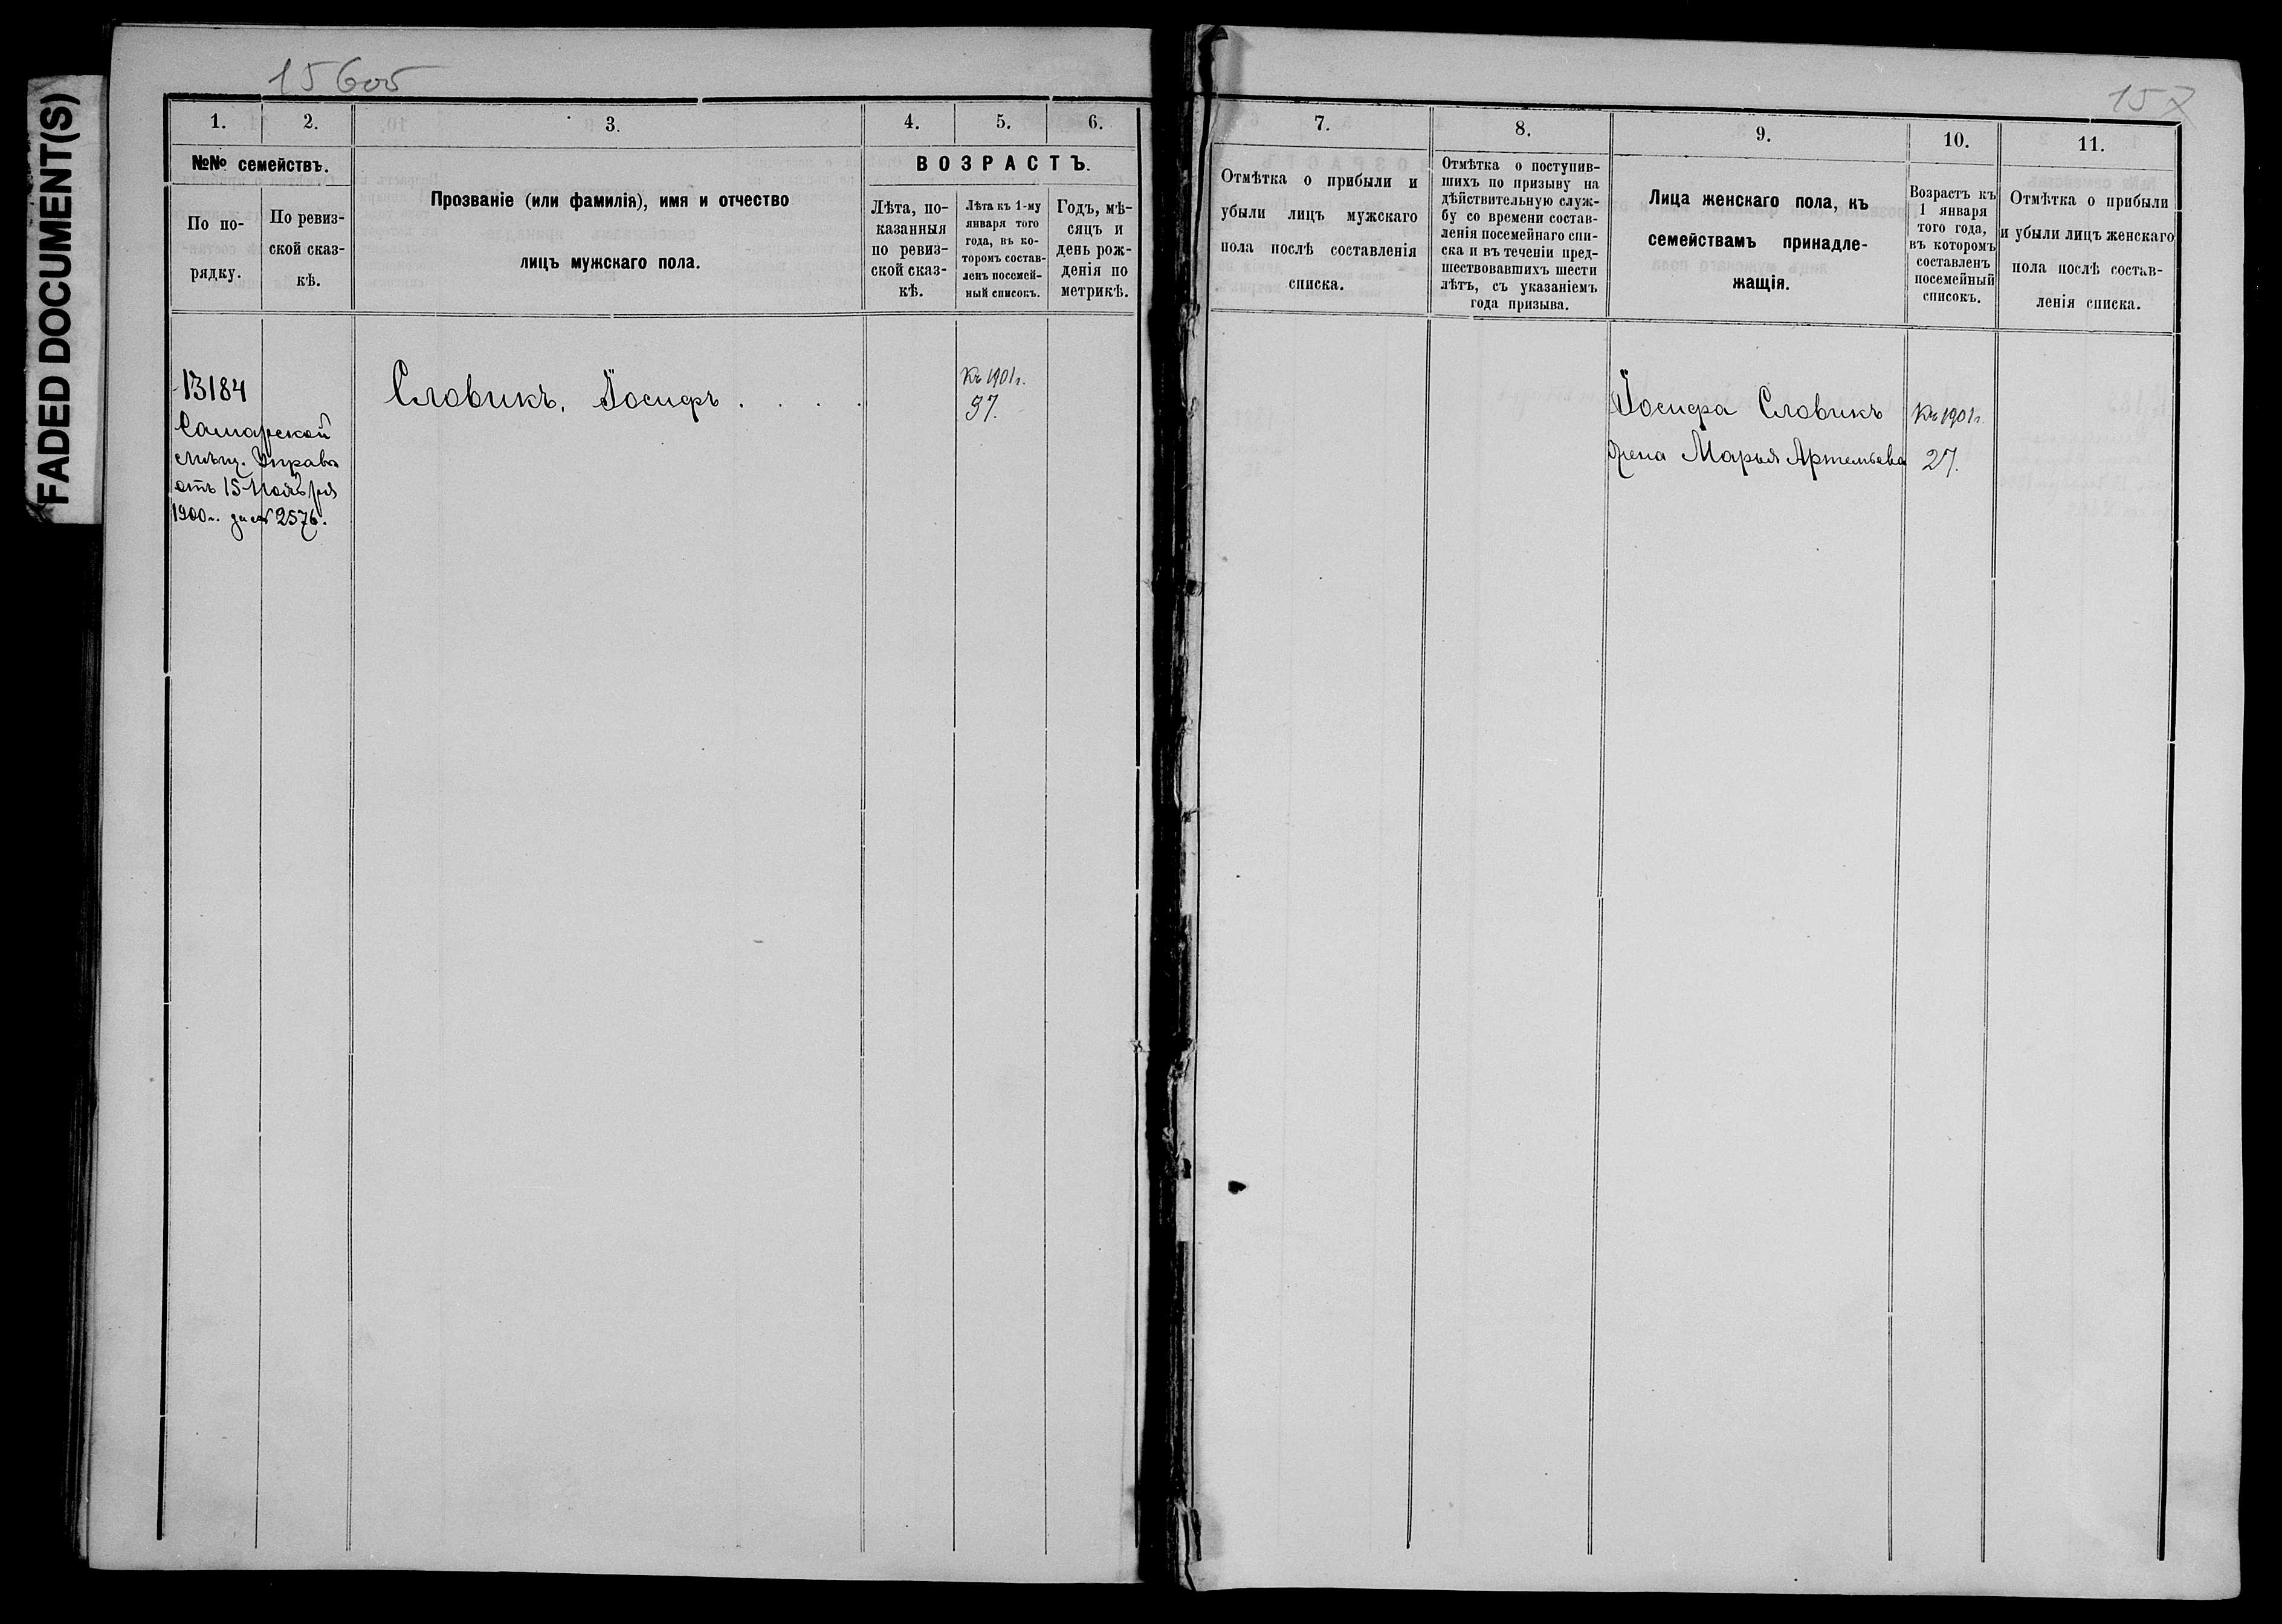 FADED DOCUMENT(S)
15 605
1.
2.
3.
4.
5.
6.
№№ семействъ.
По по-
рядку.
По ревиз-
ской сказ-
кѣ.
Прозваніе (или фамилія), имя и отчество
лицъ мужскаго пола.
ВОЗРАСТЪ.
Лѣта, по-
казанныя
по ревиз-
ской сказ-
кѣ.
Лѣта къ 1-му
января того
года, въ ко-
торомъ состав-
ленъ посемей-
ный списокъ.
Годъ, мѣ-
сяцъ и
день рож-
денія по
метрикѣ.
13184
Самарской
мѣщ. Управы
отъ 15 Ноября
1900 г. за № 2576.
Словикъ, Іосифъ . . . .
Къ 1901 г.
37.
157
7.
8.
9.
10.
11.
Отмѣтка о прибыли и
убыли лицъ мужскаго
пола послѣ составленія
списка.
Отмѣтка о поступив-
шихъ по призыву на
дѣйствительную служ-
бу со времени состав-
ленія посемейнаго спи-
ска и въ теченіи пред-
шествовавшихъ шести
лѣтъ, съ указаніемъ
года призыва.
Лица женскаго пола, къ
семействамъ принадле-
жащія.
Возрастъ къ
1 января
того года,
въ которомъ
составленъ
посемейный
списокъ.
Отмѣтка о прибыли
и убыли лицъ женскаго
пола послѣ состав-
ленія списка.
Іосифа Словикъ
жена Марья Артемьева
Къ 1901 г.
27.